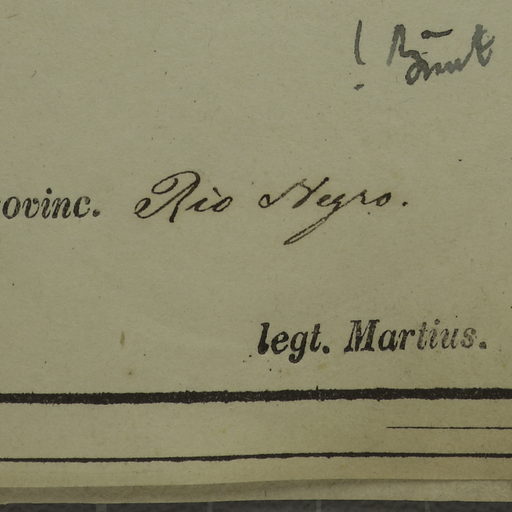 !
ovinc. Rio Negro.
legt. Martius.